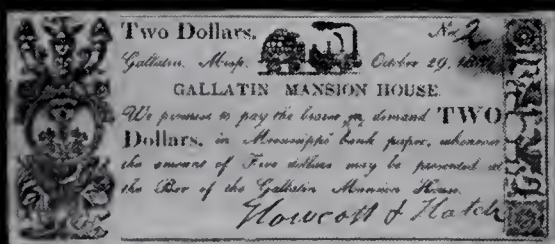 Two Dollars. No 2
Gallatin, Missp. October 29, 18
GALLATIN MANSION HOUSE.
We promise to pay the bearer on demand TWO
Dollars, in Mississippi bank paper, whenever
the amount of Five dollars may be presented at
the Bar of the Gallatin Mansion House.
Howcott & Hatch